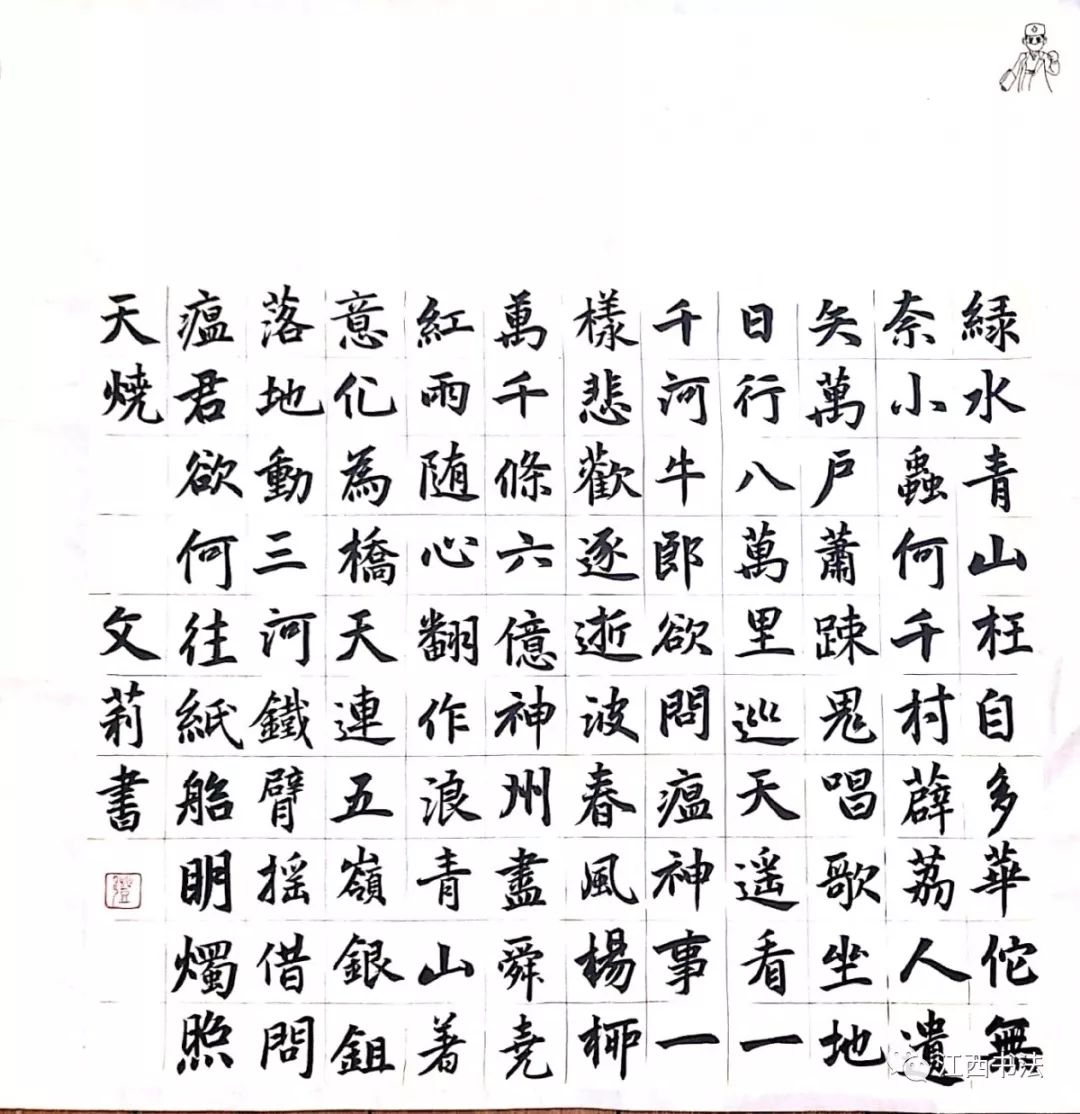 緑水青山枉自多華佗無
奈小蟲何千村薜荔人遺
矢萬戶蕭踈鬼唱歌坐地
日行八萬里巡天遥看一
千河牛郎欲問瘟神事一
樣悲歡逐逝波春風楊桺
萬千條六億神州盡舜堯
紅雨随心翻作浪青山著
意化為橋天連五嶺銀鉏
落地動三河鐵臂摇借問
瘟君欲何往紙船眀燭照
天燒
文莉書
江西书法